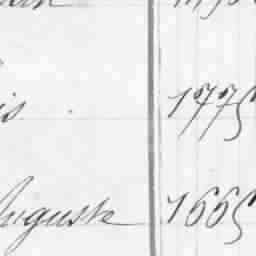 is 1775
Auguste 1665